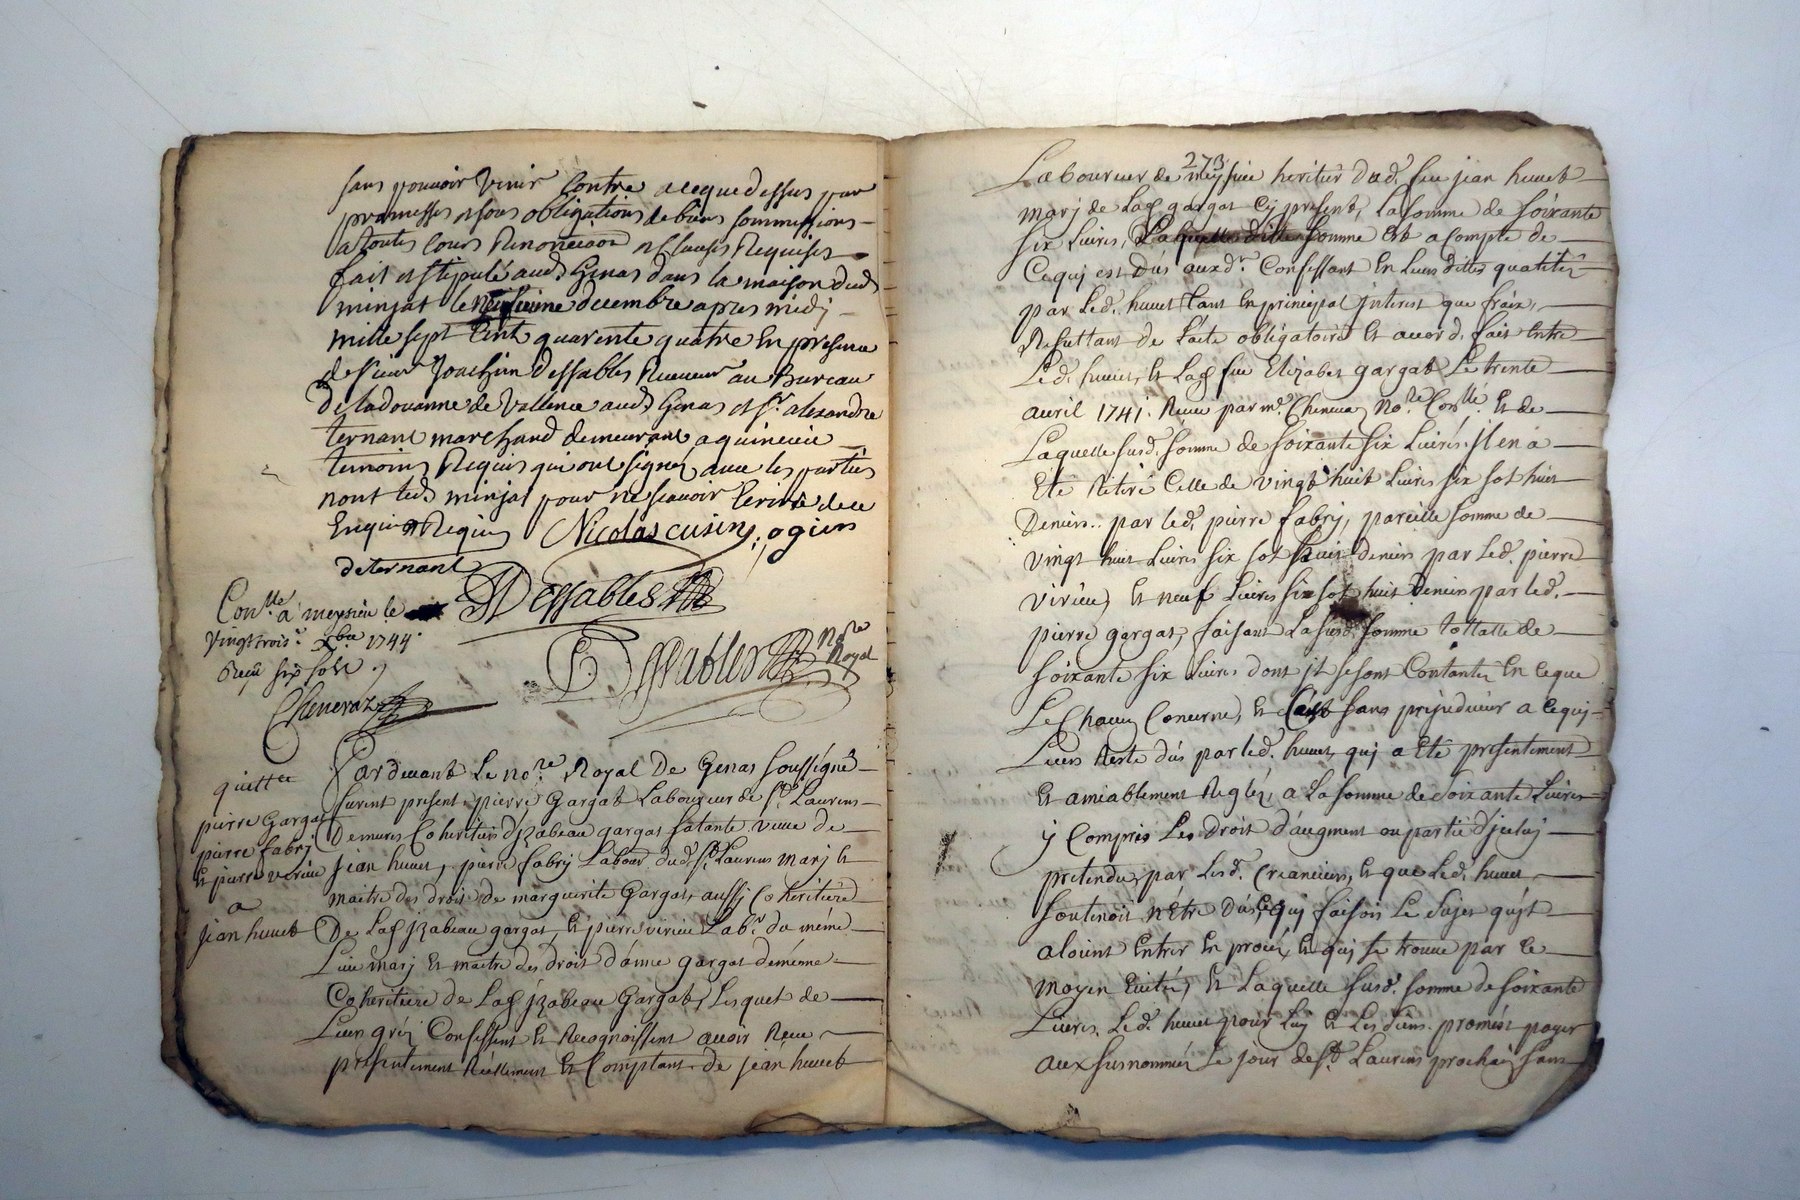 sans pouvoir venir contre a ceque dessus par
promesses et sous obligations de biens soummissions
a toutes cours Renonciaon et Clauses Requises
fait et stipulé aud Genas dans la maison dud
minjat le neufvieme decembre apres midj
mille sept Cent quarente quatre En presence
de sieur Joachim Dessables Receveur au Bureau
De la douanne de Vallence aud Genas et sr. alexandre
ternant marchand demeurant a
temoins Requis qui ont signés avec les parties
non led minjat pour ne scavoir Ecrire de ce
Enquis et Requis Nicolas cusin, ogiers
de ternant
ADessables
Conlle. a meysieu le
vingt trois e. Xbre 1744.
Reçu six sols
Cheneraz
Dessables Nore Royal
quittce
pierre Gargat
pierre fabrj
Et pierre virieu
a
jean huvet
Pardevant Le nore. Royal De Genas soussigné
furent present, pierre Gargat Laboureur de st. Laurens
Demures Coheritier d'jzabeau gargat sa tante veuve de
jean huvet, pierre fabrj Labour dud. st. Laurens marj et
maitre des droit de marguerite Gargat, aussj Coheritiere
De Lad jzabeau gargat, Et pierre virieu Labr. du méme
Lieu marj Et maitre des droit d'anne gargat demémme
Coheritiere de Lad. jzabeau Gargat, Lesquel de
Leur gréz Confessent Et Recognoissent avoir Reçu
presentement Réellement Et Comptant de jean huvet
273
Laboureur de meyssieu heritier dud. feu jean huvet
marj de Lad gargat Cy present, La somme de soixante
six Livres, Laquelle ditte somme Est a Compte de
Cequj est Dus auxdt. Confessant En Leurs dittes qualités
par Led. huvet tant En principal jnterest que fraix,
Resultant de L'acte obligatoire Et acord fait Entre
Led. huvet, Et Lad feue Elizabet gargat Le trente
avril 1741. Receu par me. Cheneraz Nore. Conlle. Et de
Laquelle susd. somme de soixante six Livres. jl en a
Eté Retiré Celle de vingt huit Livres six sol huit
Deniers.. par led. pierre fabrj, pareille somme de
vingt huit Livres six sol huit deniers par Led. pierre
virieu, Et neuf Livres six sol huit Deniers par led.
pierre gargat, faisant La susd. somme tottalle de
soixante six Livres dont jl se sont Contantez En ceque
Le Chacun Concerne, Et C'est sans prejudicier a Cequj
Leurs Reste dus par led. huvet, quj a Eté presentement
Et amiablement Reglez, a La somme de soixante Livres
y Compris Les droit d'augment ou partie d'jceluj
pretendus par Lesd. Creanciers, Et que Led. huvet
soutenoit n'Etre Dus, Cequj faisois Le sujet qu'jl
aloint Entrer En procéz, Et quj se trouve par ce
moyen Evités, Et Laquelle susd. somme de soixante
Livres, Led. huvet pour Luj Et Les siens promést payer
aux susnommés Le jour de st. Laurens prochain sans